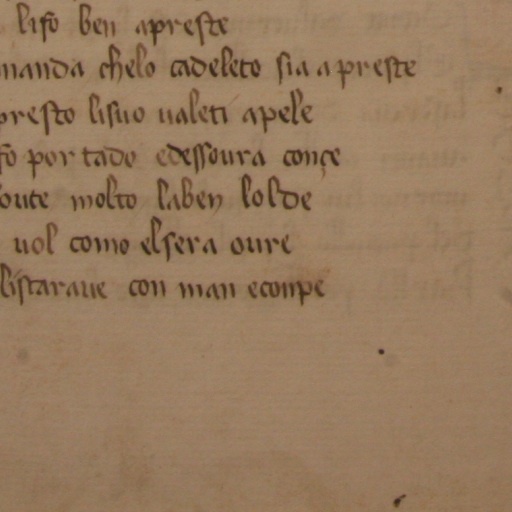 lifo ben apreste
manda chelo cadeleto sia apreste
presto lisuo ualeti apele
fo portado edessoura conçe
molto laben lolde
uol como elsera oure
listaraue con man econpe